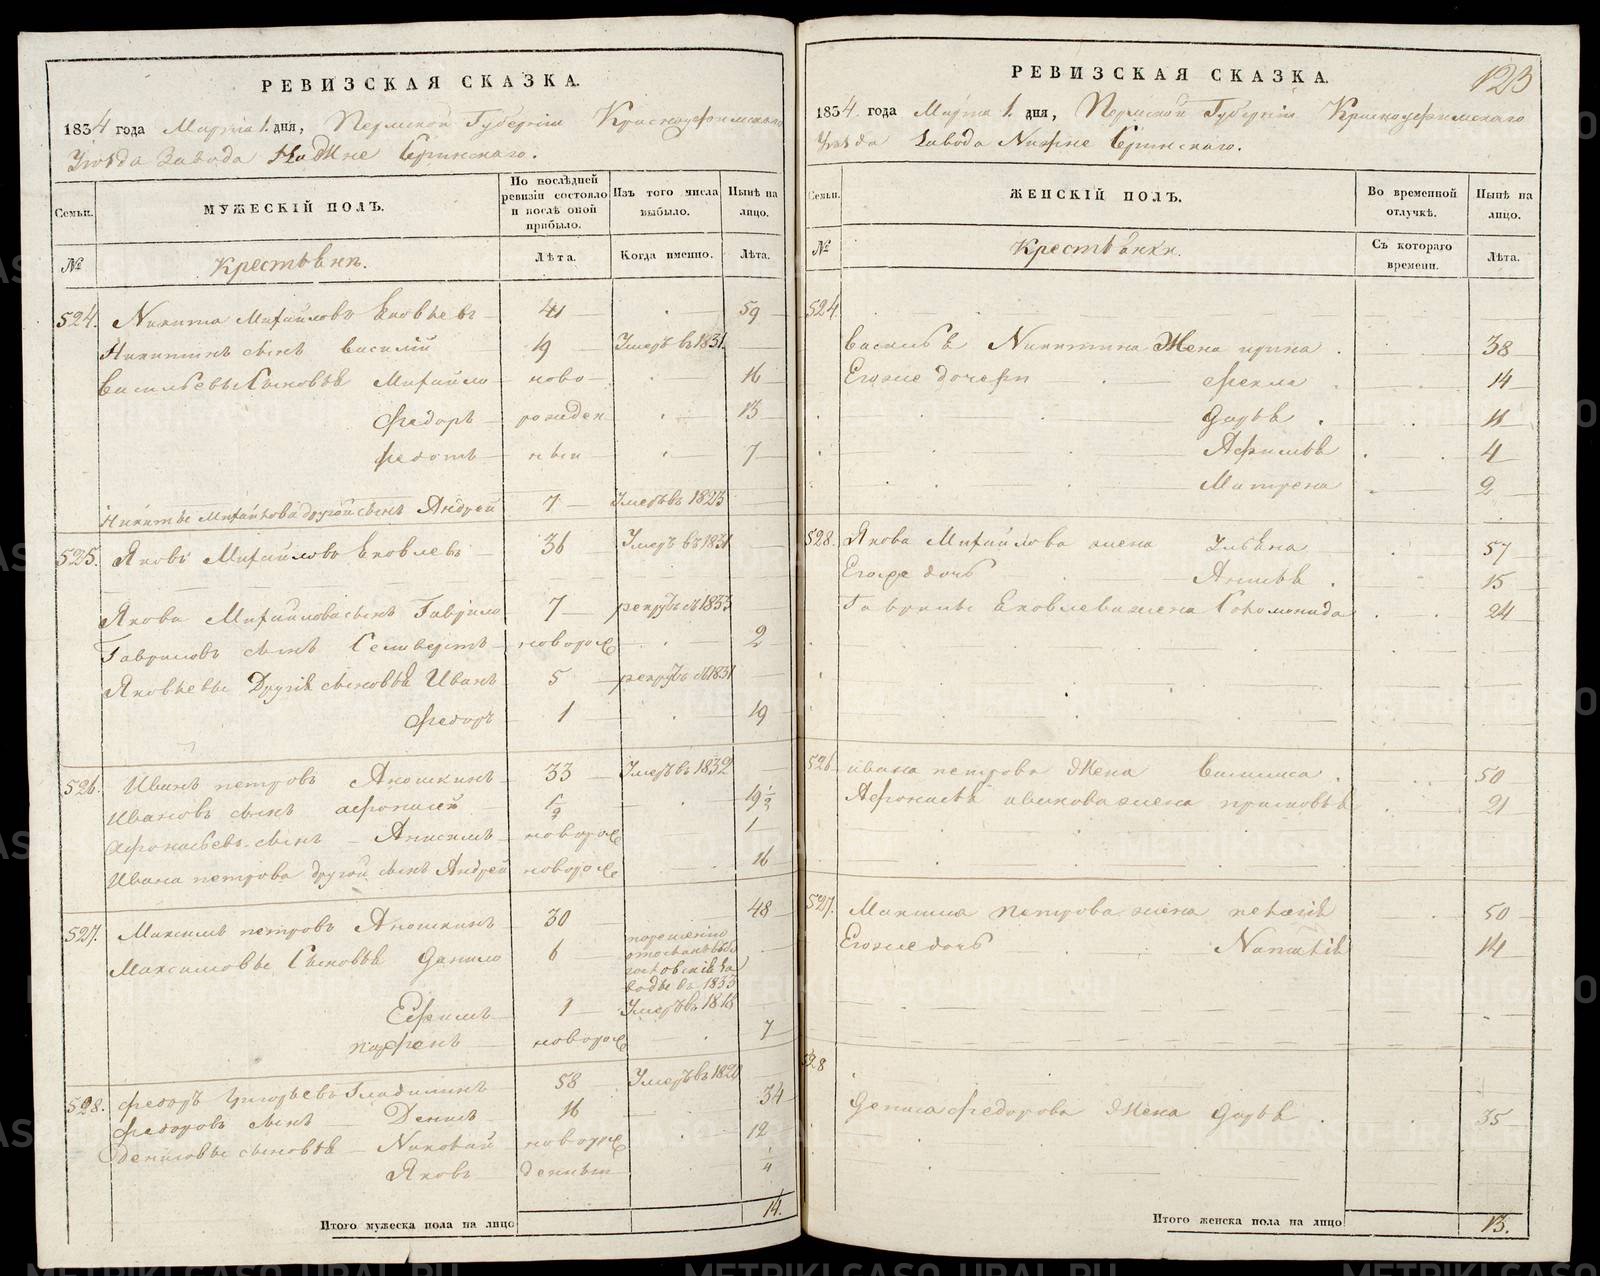 РЕВИЗСКАЯ СКАЗКА.
1834 года Марта 1. дня, Пермской Губернии Красноуфимскаго
Уѣзда Завода Нижне Сергинскаго.
Семьи.
МУЖЕСКІЙ ПОЛЪ.
По послѣдней ревизіи состояло и послѣ оной прибыло.
Изъ того числа выбыло.
Нынѣ на лицо.
№
Крестьяне.
Лѣта.
Когда именно.
Лѣта.
524. Никита Михайловъ Яковлевъ 41 59
Никитинъ сынъ Василій 19 Умеръ въ 1831.
Васильевы Сыновья Михайло ново 16
Федоръ рожден 13
Федотъ ные 7
Никиты Михайлова другой сынъ Андрей 7 Умеръ въ 1823
525. Яковъ Михайловъ Яковлевъ 36 Умеръ въ 1831
Якова Михайлова сынъ Гаврило 7 рекрутъ съ 1833
Гавриловъ сынъ Селиверстъ новорож 2
Яковлевы Другія сыновья Иванъ 5 рекрутъ съ 1831
Федоръ 1 19
526. Иванъ петровъ Аношкинъ 33 Умеръ въ 1832
Ивановъ сынъ афонасей ½ 19½
афонасьевъ сынъ Анисимъ новорож 1
Ивана петрова другой сынъ Андрей новорож 16
527. Максимъ петровъ Аношкинъ 30 48
Максимовы Сыновья Данило 6 порешению
1833
Ефимъ 1 Умеръ въ 1818
парфенъ новорож 7
528. Федоръ Григорьевъ 58 Умеръ въ 1820
Федоровъ сынъ Денисъ 16 34
Денисовы сыновья Николай новорож 12
Яковъ денныи ¼
Итого мужеска пола на лицо 14.
123
РЕВИЗСКАЯ СКАЗКА.
1834. года Марта 1. дня, Пермской Губерніи Красноуфимскаго
Уѣзда Завода Нижне Сергинскаго.
Семьи.
ЖЕНСКІЙ ПОЛЪ.
Во временной отлучкѣ.
Нынѣ на лицо.
№
Крестьянки.
Съ котораго времени.
Лѣта.
524.
Василья Никитина Жена ирина 38
Егоже дочери фекла 14
Дарья 11
Афимья 4
Матрена 2
528. Якова Михайлова жена Ульяна 57
Егоже дочь Анисья 15
Гаврилы Яковлева жена Соломонида 24
526. ивана петрова Жена Василиса 50
Афонасья иванова жена 21
527. Максима петрова жена пелагія 50
Егоже дочь Наталія 14
528
Дениса Федорова Жена Дарья 35
Итого женска пола на лицо 13.
METRIKI.CASO-URAL.RU